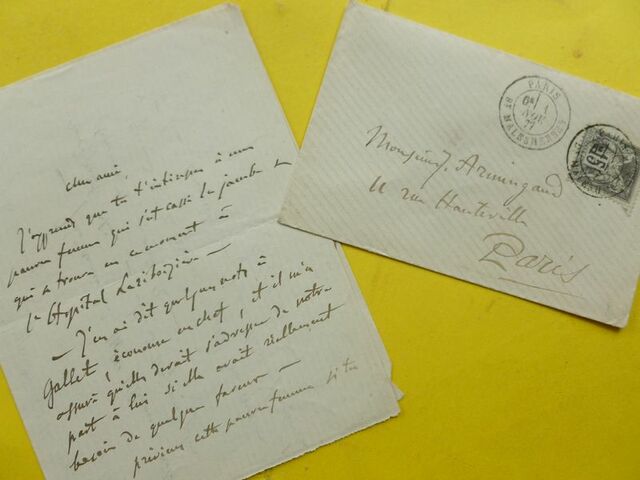 cher ami,
J'apprends que tu t'intéresses à une
pauvre femme qui s'est cassé la jambe et
qui se trouve en ce moment à
l'Hôpital Lariboisière —
— J'en ai dit quelques mots à
Gallet, économe en chef, et il m'a
assuré qu'elle devait s'adresser de notre
part à lui si elle avait réellement
besoin de quelque faveur —
préviens cette pauvre femme si tu
Monsieur J. Armingaud
11 rue Hauteville
Paris
PARIS
1
NOV
77
Bd MALESHERBES